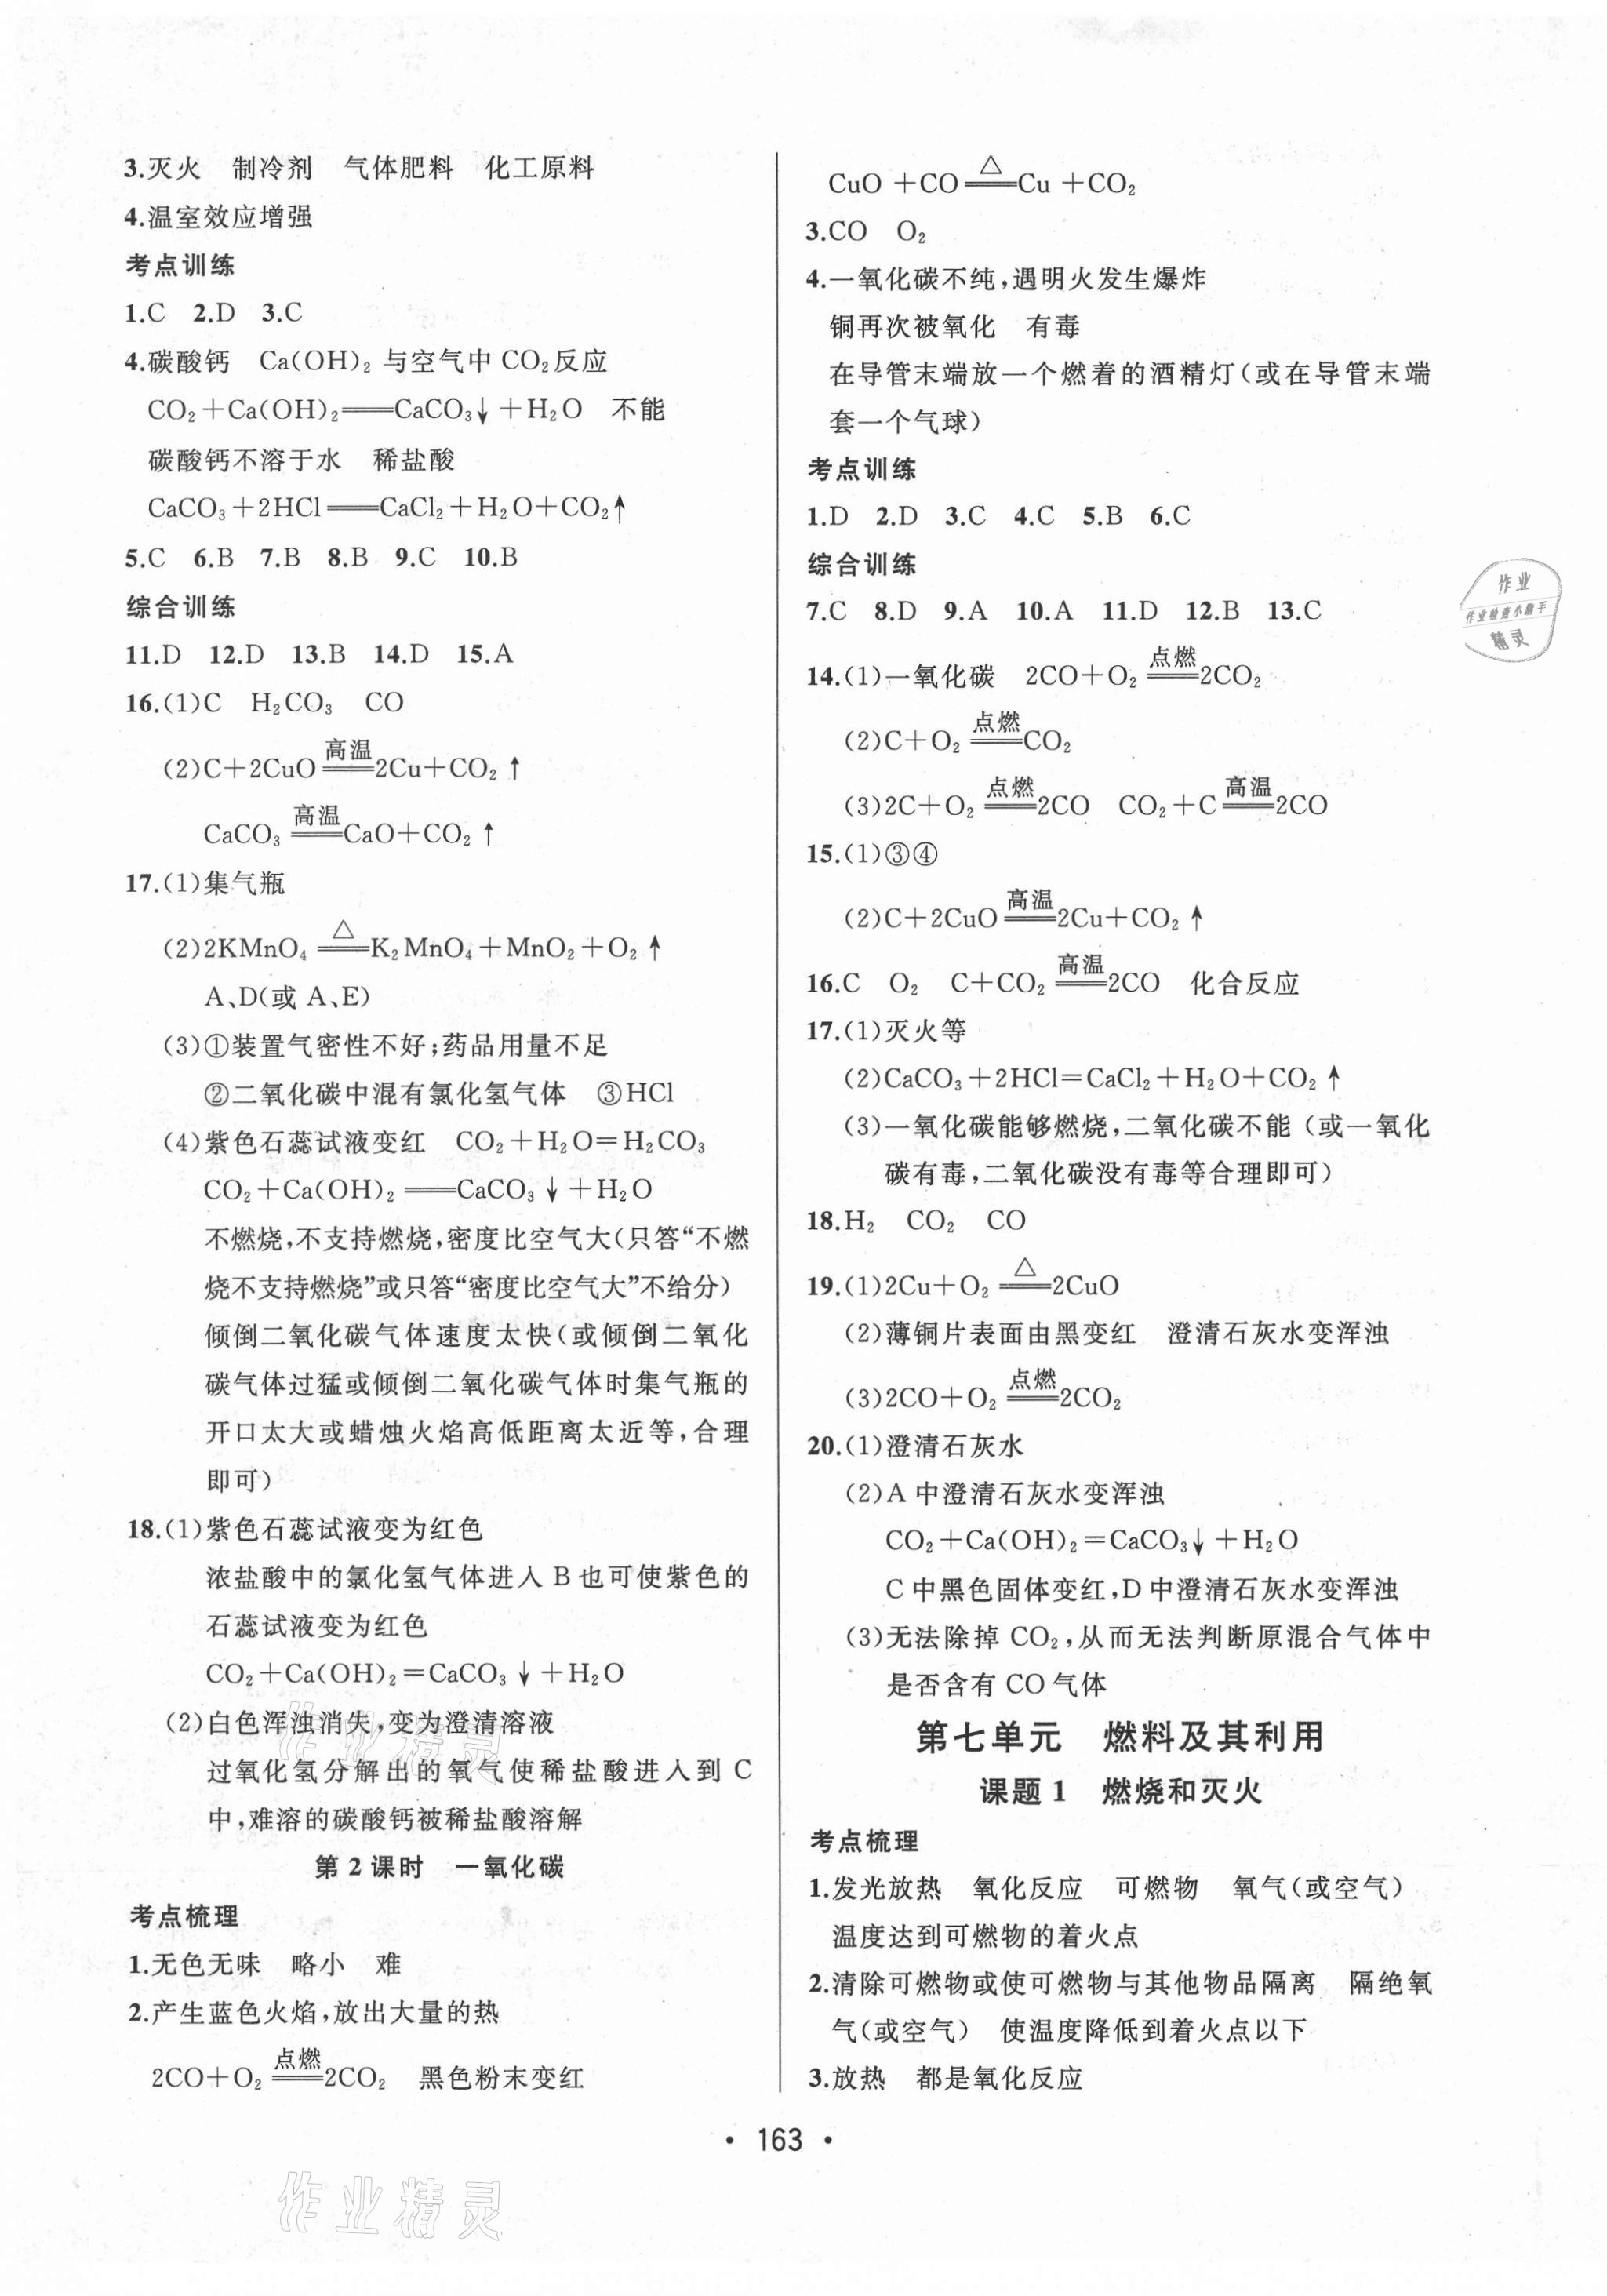 3.灭火　制冷剂　气体肥料　化工原料
4.温室效应增强
考点训练
1.C　2.D　3.C
4.碳酸钙　Ca(OH)₂ 与空气中 CO₂反应
CO₂＋Ca(OH)₂══CaCO₃↓＋H₂O　不能
碳酸钙不溶于水　稀盐酸
CaCO₃＋2HCl══CaCl₂＋H₂O＋CO₂↑
5.C　6.B　7.B　8.B　9.C　10.B
综合训练
11.D　12.D　13.B　14.D　15.A
16.(1)C　H₂CO₃　CO
(2)C＋2CuO 高温══ 2Cu＋CO₂↑
CaCO₃ 高温══ CaO＋CO₂↑
17.(1)集气瓶
(2)2KMnO₄ △══ K₂MnO₄＋MnO₂＋O₂↑
A、D(或 A、E)
(3)①装置气密性不好;药品用量不足
②二氧化碳中混有氯化氢气体　③HCl
(4)紫色石蕊试液变红　CO₂＋H₂O＝H₂CO₃
CO₂＋Ca(OH)₂══CaCO₃↓＋H₂O
不燃烧,不支持燃烧,密度比空气大(只答“不燃
烧不支持燃烧”或只答“密度比空气大”不给分)
倾倒二氧化碳气体速度太快(或倾倒二氧化
碳气体过猛或倾倒二氧化碳气体时集气瓶的
开口太大或蜡烛火焰高低距离太近等,合理
即可)
18.(1)紫色石蕊试液变为红色
浓盐酸中的氯化氢气体进入 B 也可使紫色的
石蕊试液变为红色
CO₂＋Ca(OH)₂＝CaCO₃↓＋H₂O
(2)白色浑浊消失,变为澄清溶液
过氧化氢分解出的氧气使稀盐酸进入到 C
中,难溶的碳酸钙被稀盐酸溶解
第 2 课时　一氧化碳
考点梳理
1.无色无味　略小　难
2.产生蓝色火焰,放出大量的热
2CO＋O₂ 点燃══ 2CO₂　黑色粉末变红
CuO＋CO △══ Cu＋CO₂
3.CO　O₂
4.一氧化碳不纯,遇明火发生爆炸
铜再次被氧化　有毒
在导管末端放一个燃着的酒精灯(或在导管末端
套一个气球)
考点训练
1.D　2.D　3.C　4.C　5.B　6.C
综合训练
7.C　8.D　9.A　10.A　11.D　12.B　13.C
14.(1)一氧化碳　2CO＋O₂ 点燃══ 2CO₂
(2)C＋O₂ 点燃══ CO₂
(3)2C＋O₂ 点燃══ 2CO　CO₂＋C 高温══ 2CO
15.(1)③④
(2)C＋2CuO 高温══ 2Cu＋CO₂↑
16.C　O₂　C＋CO₂ 高温══ 2CO　化合反应
17.(1)灭火等
(2)CaCO₃＋2HCl＝CaCl₂＋H₂O＋CO₂↑
(3)一氧化碳能够燃烧,二氧化碳不能(或一氧化
碳有毒,二氧化碳没有毒等合理即可)
18.H₂　CO₂　CO
19.(1)2Cu＋O₂ △══ 2CuO
(2)薄铜片表面由黑变红　澄清石灰水变浑浊
(3)2CO＋O₂ 点燃══ 2CO₂
20.(1)澄清石灰水
(2)A 中澄清石灰水变浑浊
CO₂＋Ca(OH)₂＝CaCO₃↓＋H₂O
C 中黑色固体变红,D 中澄清石灰水变浑浊
(3)无法除掉 CO₂,从而无法判断原混合气体中
是否含有 CO 气体
第七单元　燃料及其利用
课题 1　燃烧和灭火
考点梳理
1.发光放热　氧化反应　可燃物　氧气(或空气)
温度达到可燃物的着火点
2.清除可燃物或使可燃物与其他物品隔离　隔绝氧
气(或空气)　使温度降低到着火点以下
3.放热　都是氧化反应
• 163 •
作业
作业检查小助手
精灵
作业精灵
作业精灵